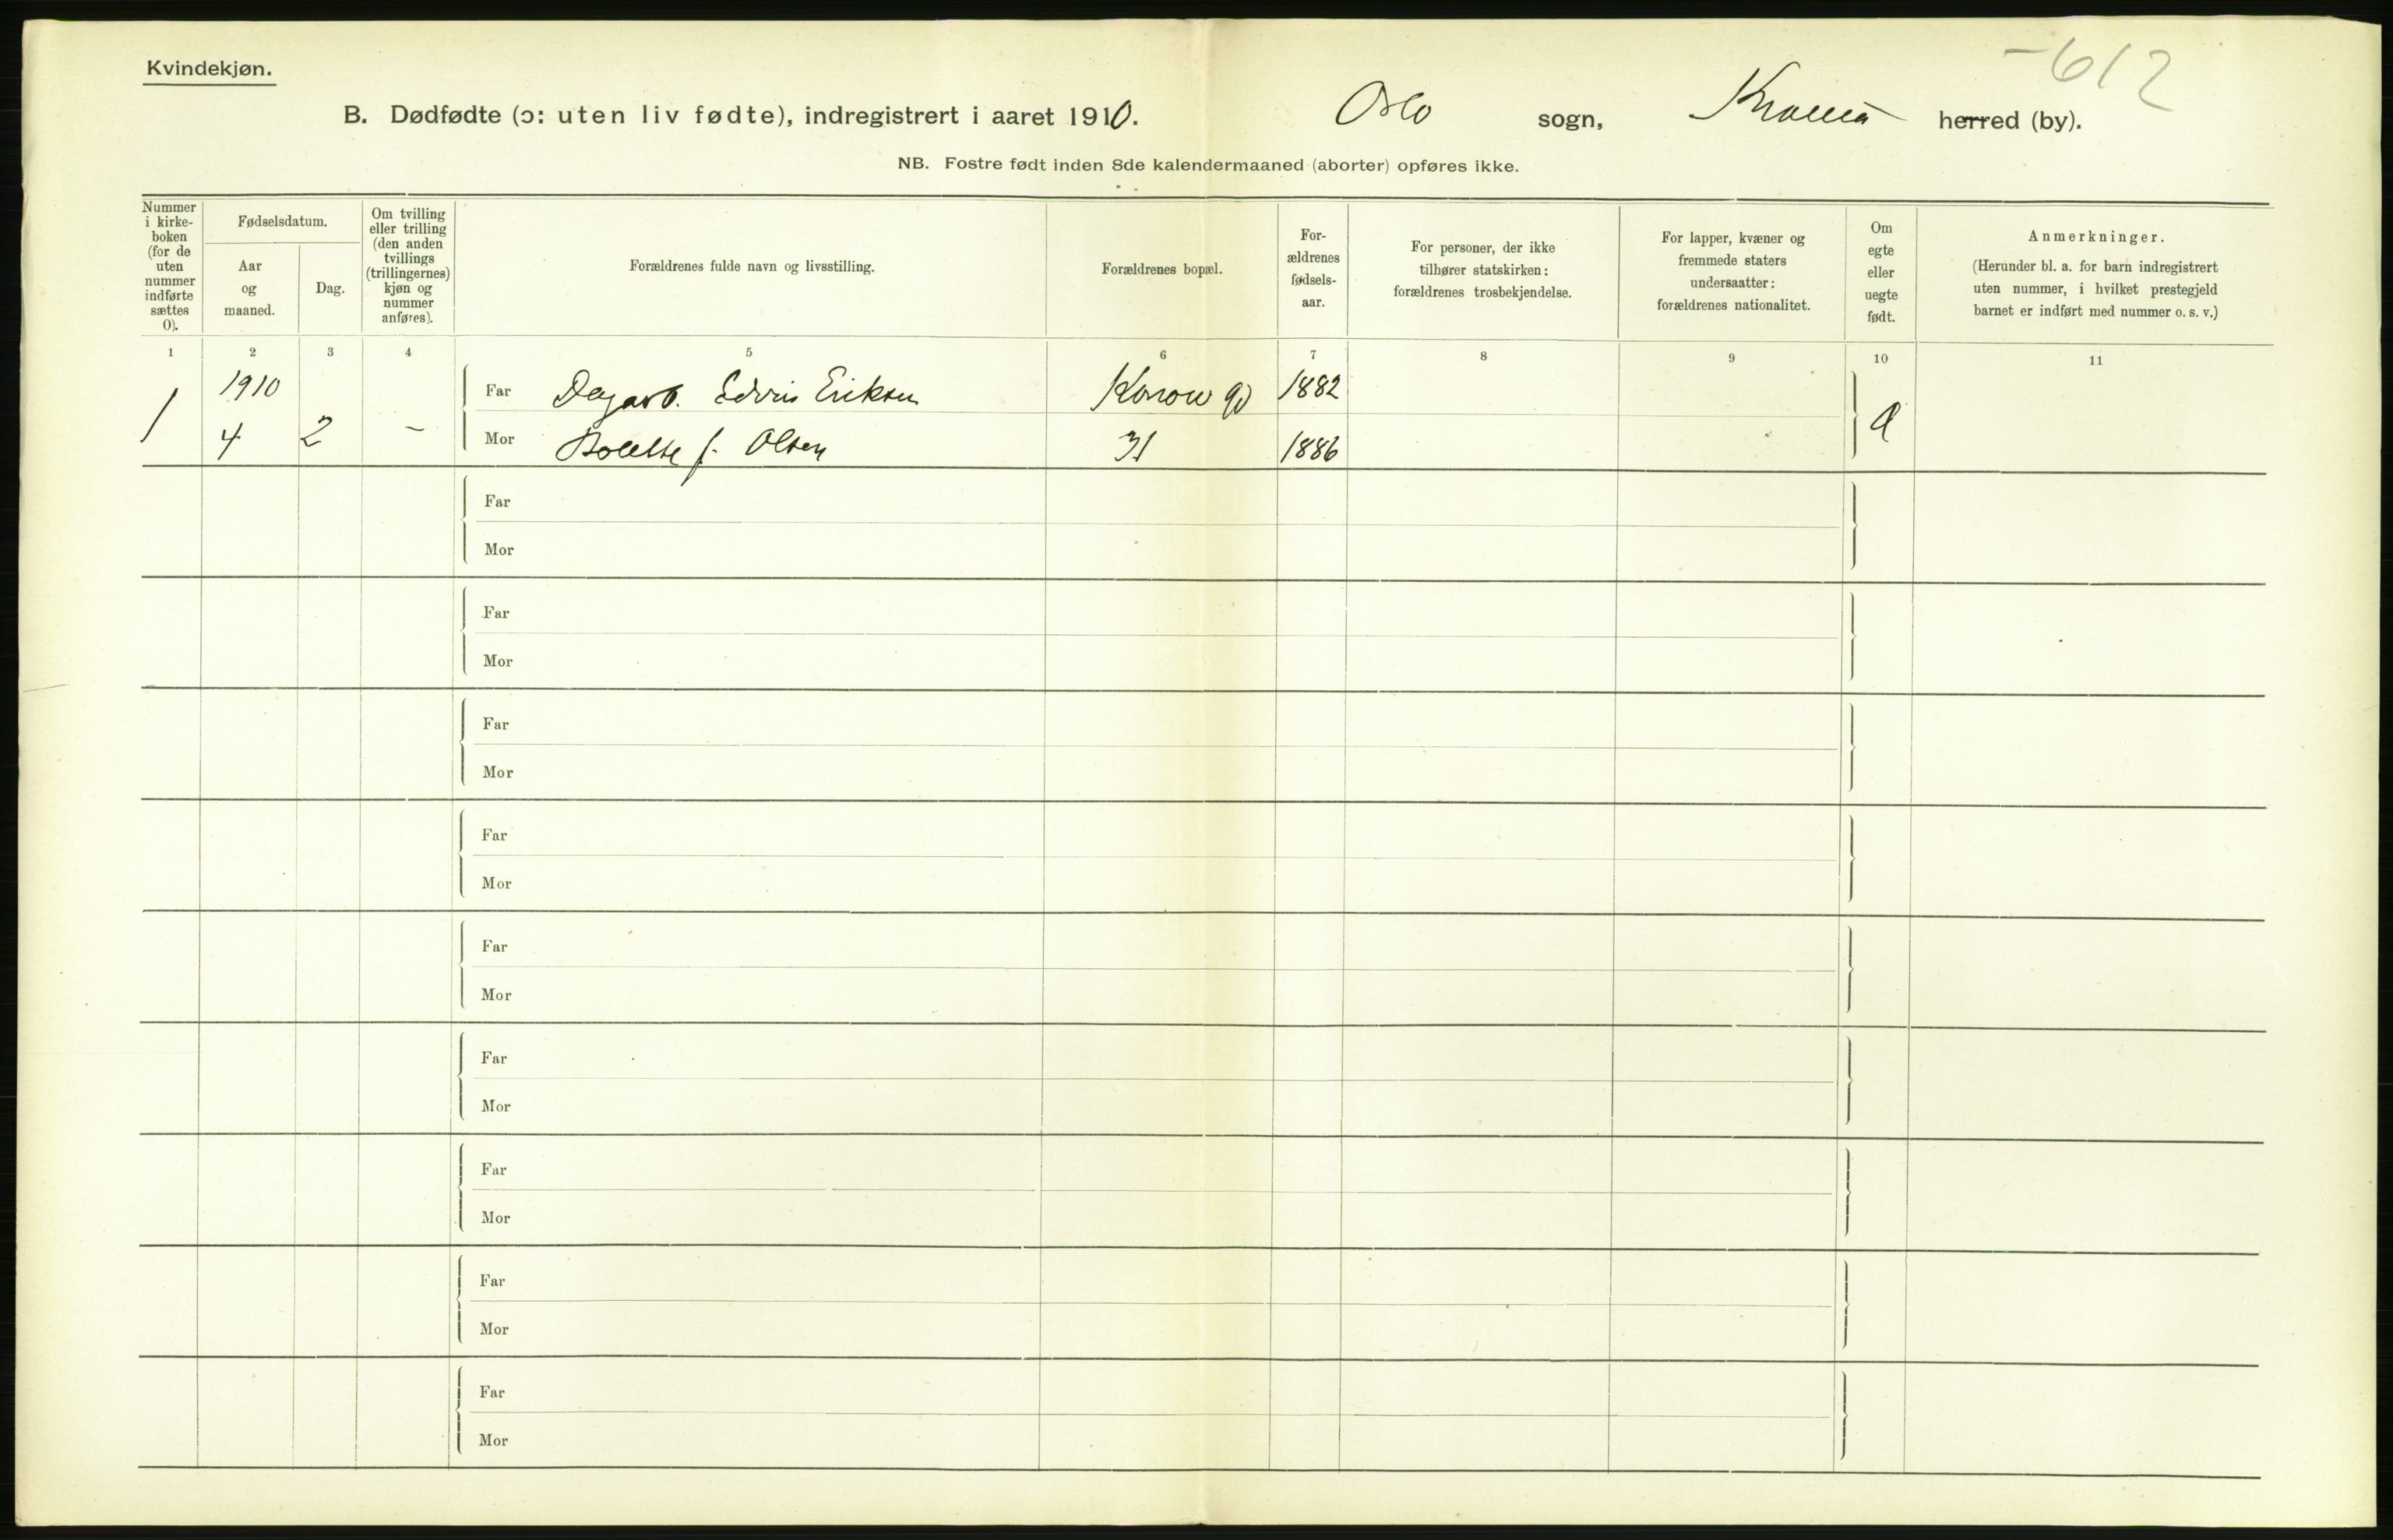 -612
Kvindekjøn.
B. Dødfødte (ɔ: uten liv fødte), indregistrert i aaret 1910. Oslo sogn, Krania herred (by).
NB. Fostre født inden 8de kalendermaaned (aborter) opføres ikke.
Nummer i kirke-boken (for de uten nummer indførte sættes 0).
Fødselsdatum.
Aar og maaned.
Dag.
Om tvilling eller trilling (den anden tvillings (trillingernes) kjøn og nummer anføres).
Forældrenes fulde navn og livsstilling.
Forældrenes bopæl.
For-ældrenes fødsels-aar.
For personer, der ikke tilhører statskirken: forældrenes trosbekjendelse.
For lapper, kvæner og fremmede staters undersaatter: forældrenes nationalitet.
Om egte eller uegte født.
Anmerkninger.
(Herunder bl. a. for barn indregistrert uten nummer, i hvilket prestegjeld barnet er indført med nummer o. s. v.)
1 2 3 4 5 6 7 8 9 10 11
1910 Far Dagarb. Eriksen Konow gd 1882
1 4 2 - Mor Bolette f. Olsen 31 1886
Far
Mor
Far
Mor
Far
Mor
Far
Mor
Far
Mor
Far
Mor
Far
Mor
Far
Mor
Far
Mor